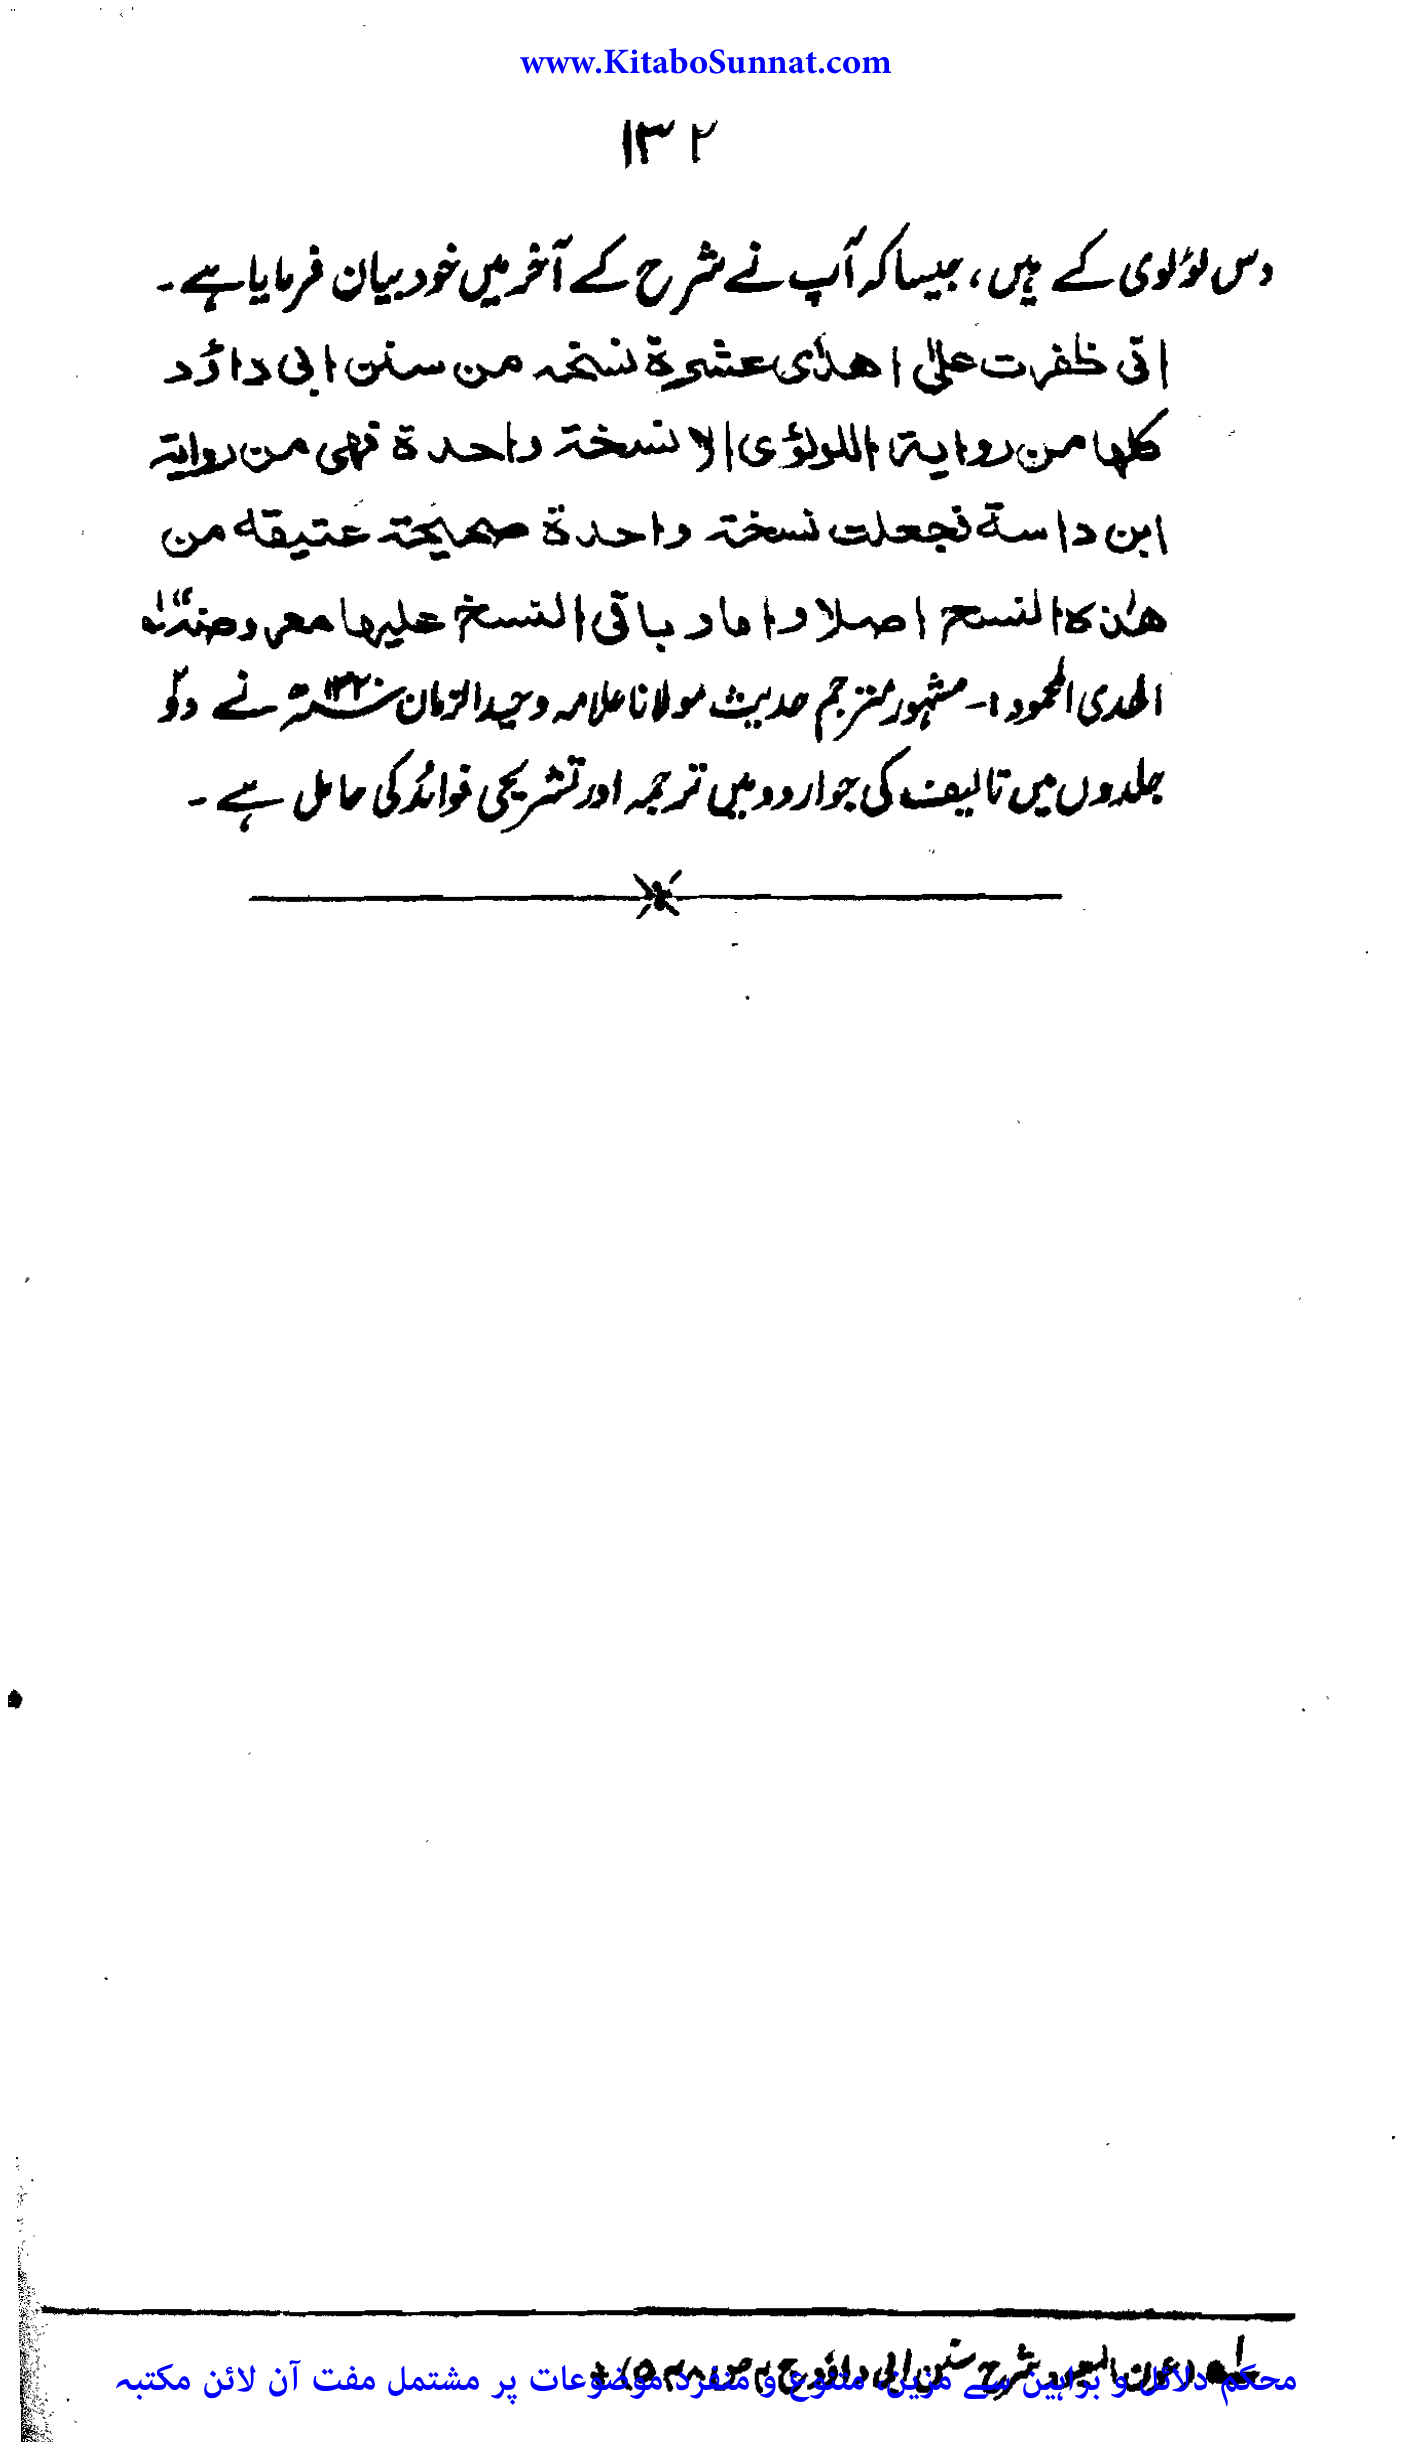 www.KitaboSunnat.com
۱۳۲
دس لوٗلوی کے ہیں، جیسا کہ آپ نے شرح کے آخر میں خود بیان فرمایا ہے۔
انی ظفرت علیٰ احدٰی عشرة نسخہ من سنن ابی داؤد
کلہا من روایۃ اللولؤی الا نسخۃ واحدۃ فہی من روایۃ
ابن داسۃ فجعلت نسخۃ واحدۃ صحیحۃ عتیقہ من
ھٰذہ النسخ اصلا و اما باقی النسخ علیہا معروضۃ"
الھدی المحمود :- مشہور مترجم حدیث مولانا علامہ وحید الزمان نے دو
جلدوں میں تالیف کی جو اردو میں ترجمہ اور تشریحی فوائد کی حامل ہے۔
لہ عون المعبود شرح سنن ابی داؤد ج
محکم دلائل و براہین سے مزین، متنوع و منفرد موضوعات پر مشتمل مفت آن لائن مکتبہ